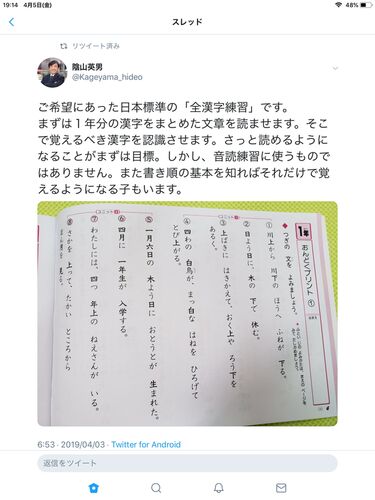 19:14 4月5日(金)
48%
スレッド
リツイート済み
陰山英男
@Kageyama_hideo
ご希望にあった日本標準の「全漢字練習」です。
まずは１年分の漢字をまとめた文章を読ませます。そこ
で覚えるべき漢字を認識させます。さっと読めるように
なることがまずは目標。しかし、音読練習に使うもので
はありません。また書き順の基本を知ればそれだけで覚
えるようになる子もいます。
1年 おんどくプリント ①
◆つぎの 文を よみましょう。
ユニット1
① 川上から 川下の ほうへ ふねが 下る。
② 日よう日に、木の 下で 休む。
③ 上ばきに はきかえて、おく上や ろう下を
あるく。
④ 四わの 白鳥が、まっ白な はねを ひろげて
とび上がる。
⑤ 一月六日の 木よう日に おとうとが 生まれた。
ユニット2
⑥ 四月に 一年生が 入学する。
⑦ わたしには、四つ 年上の ねえさんが いる。
⑧ さかを 上って、たかい ところから
見る。
6:53 · 2019/04/03 · Twitter for Android
返信をツイート